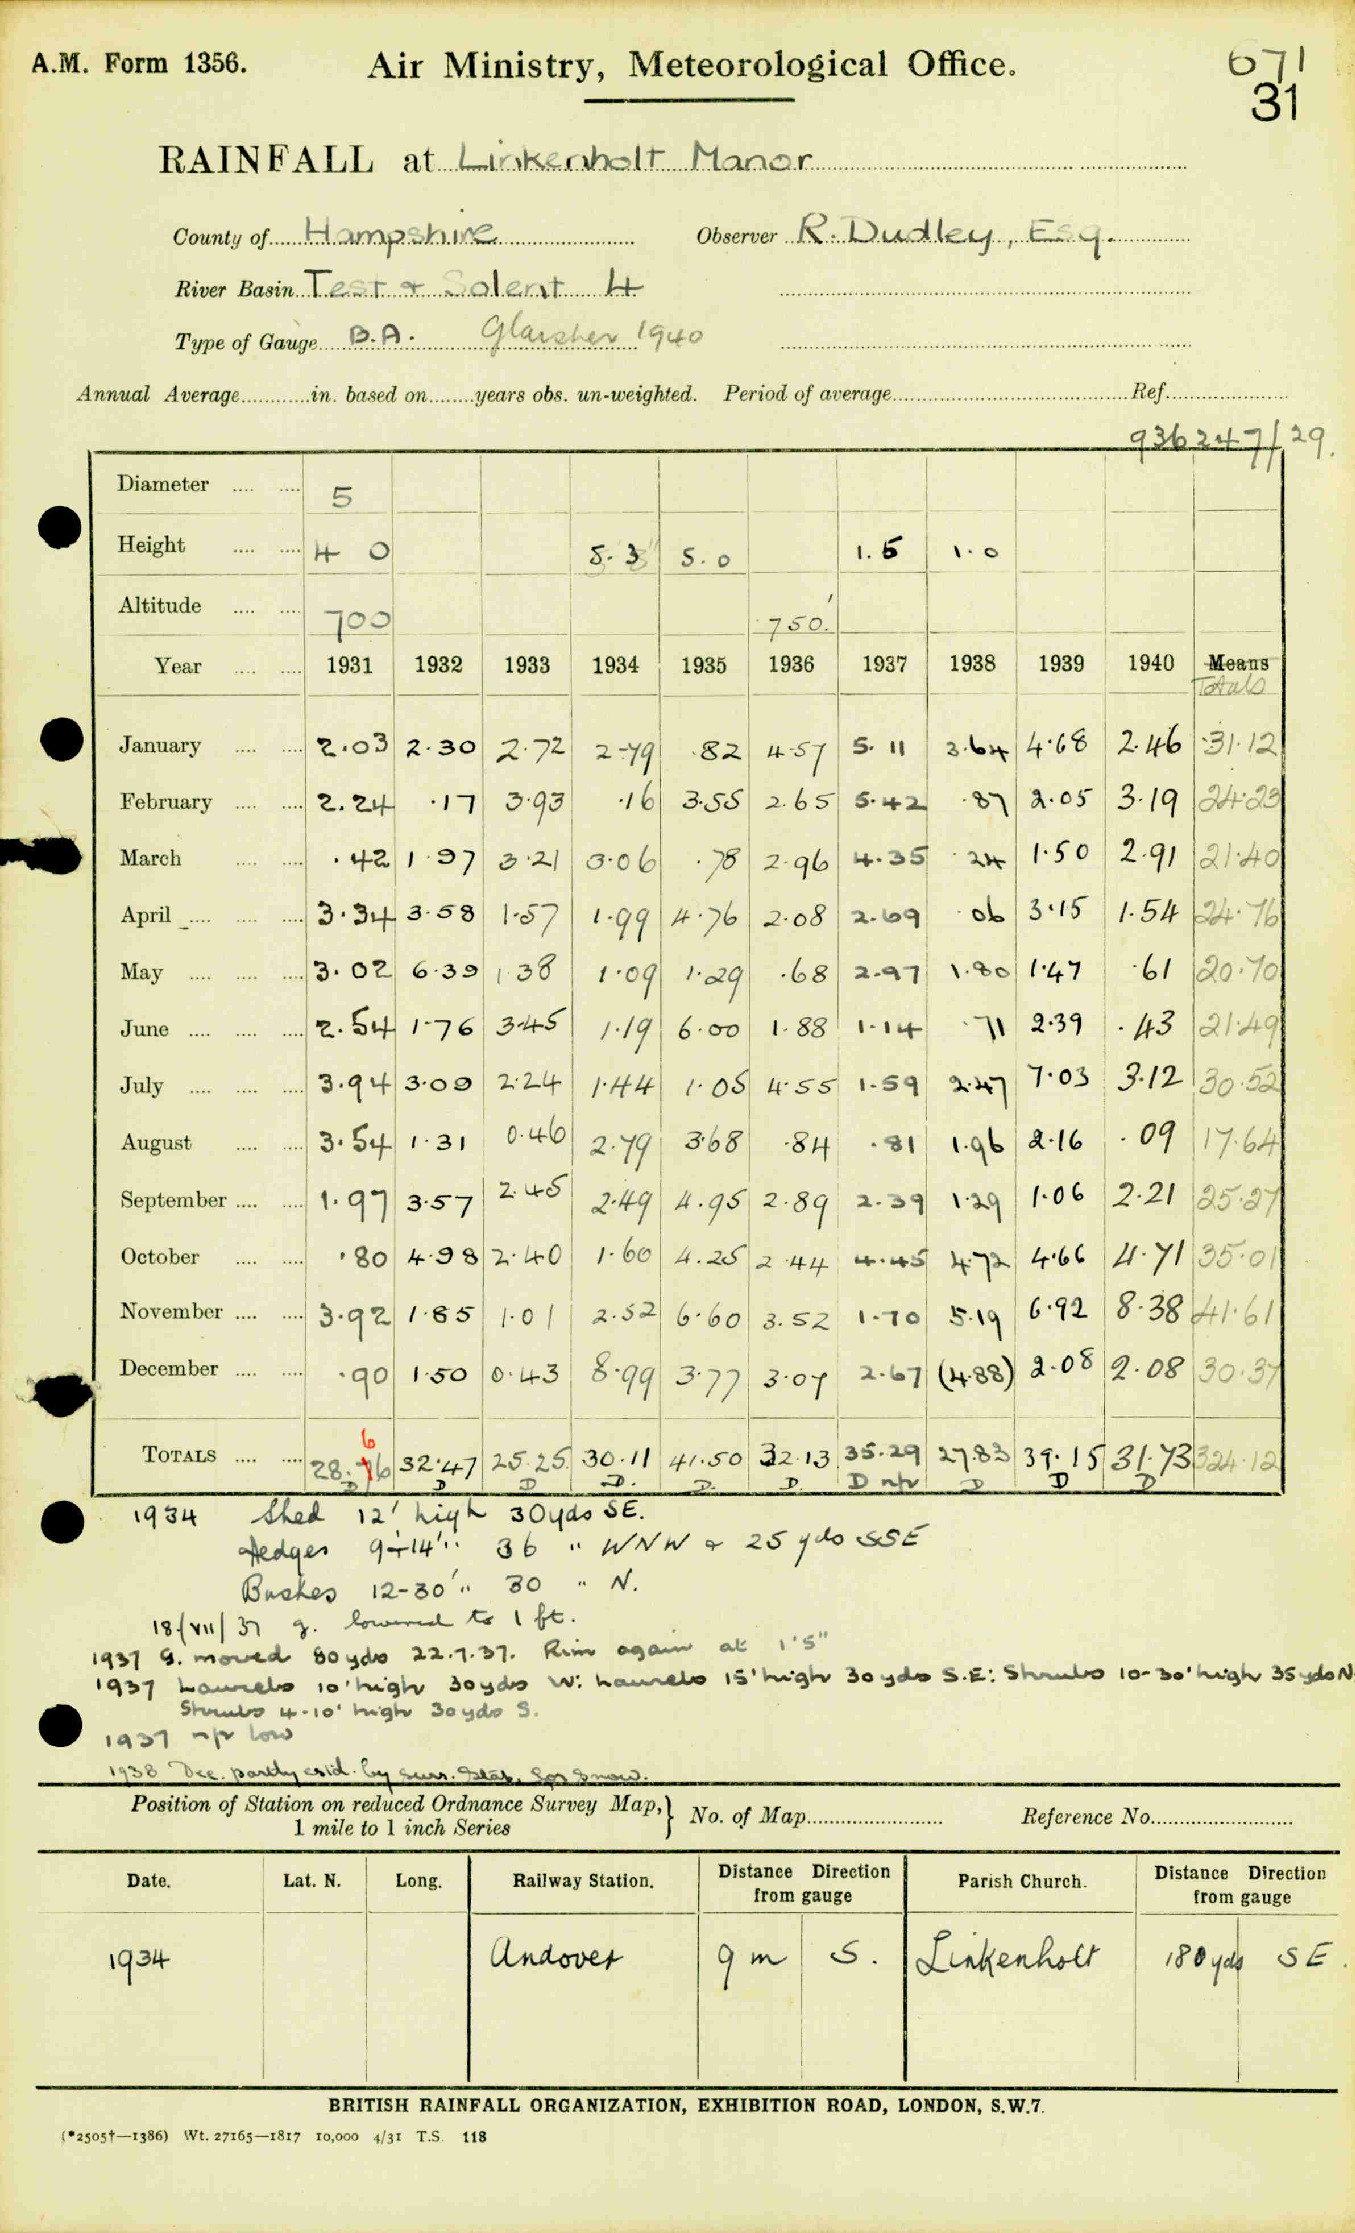 A.M. Form 1356.
Air Ministry, Meteorological Office.
671
31
RAINFALL at Linkenholt Manor
County of Hampshire Observer R. Dudley, Esq.
River Basin Test & Solent 4
Type of Gauge B.A. Glaisher 1940
Annual Average in. based on years obs. un-weighted. Period of average Ref.
936247/29.
Diameter 5
Height 4 0 5.3 5.0 1.5 1.0
Altitude 700 750'
Year 1931 1932 1933 1934 1935 1936 1937 1938 1939 1940 Means
Totals
January 2.03 2.30 2.72 2.79 .82 4.57 5.11 3.64 4.68 2.46 31.12
February 2.24 .17 3.93 .16 3.55 2.65 5.42 .87 2.05 3.19 24.23
March .42 1.97 3.21 3.06 .78 2.96 4.35 .24 1.50 2.91 21.40
April 3.34 3.58 1.57 1.99 4.76 2.08 2.69 .06 3.15 1.54 24.76
May 3.02 6.39 1.38 1.09 1.29 .68 2.97 1.80 1.47 .61 20.70
June 2.54 1.76 3.45 1.19 6.00 1.88 1.14 .71 2.39 .43 21.49
July 3.94 3.09 2.24 1.44 1.05 4.55 1.59 2.47 7.03 3.12 30.52
August 3.54 1.31 0.46 2.79 3.68 .84 .81 1.96 2.16 .09 17.64
September 1.97 3.57 2.45 2.49 4.95 2.89 2.39 1.29 1.06 2.21 25.27
October .80 4.98 2.40 1.60 4.25 2.44 4.45 4.72 4.66 4.71 35.01
November 3.92 1.85 1.01 2.52 6.60 3.52 1.70 5.19 6.92 8.38 41.61
December .90 1.50 0.43 8.99 3.77 3.07 2.67 (4.88) 2.08 2.08 30.37
6
TOTALS 28.76 32.47 25.25 30.11 41.50 32.13 35.29 27.83 39.15 31.73 324.12
D D D D. D. D. D n/r D D D
1934 Shed 12' high 30yds SE.
Hedges 9+14' " 36 " WNW & 25 yds SSE
Bushes 12-30' " 30 " N.
18/VII/37 g. lowered to 1 ft.
1937 G. moved 80yds 22.7.37. Rim again at 1'5"
1937 Laurels 10' high 30yds W: Laurels 15' high 30yds S.E: Shrubs 10-30' high 35yds N
Shrubs 4-10' high 30yds S.
1937 n/r low
1938 Dec. partly estd. by surr. stas. for snow.
Position of Station on reduced Ordnance Survey Map, } No. of Map Reference No.
1 mile to 1 inch Series
Date. Lat. N. Long. Railway Station. Distance Direction from gauge Parish Church. Distance Direction from gauge
1934 Andover 9 m S. Linkenholt 180yds SE.
BRITISH RAINFALL ORGANIZATION, EXHIBITION ROAD, LONDON, S.W.7.
(*2505†—1386) Wt. 27165—1817 10,000 4/31 T.S. 118